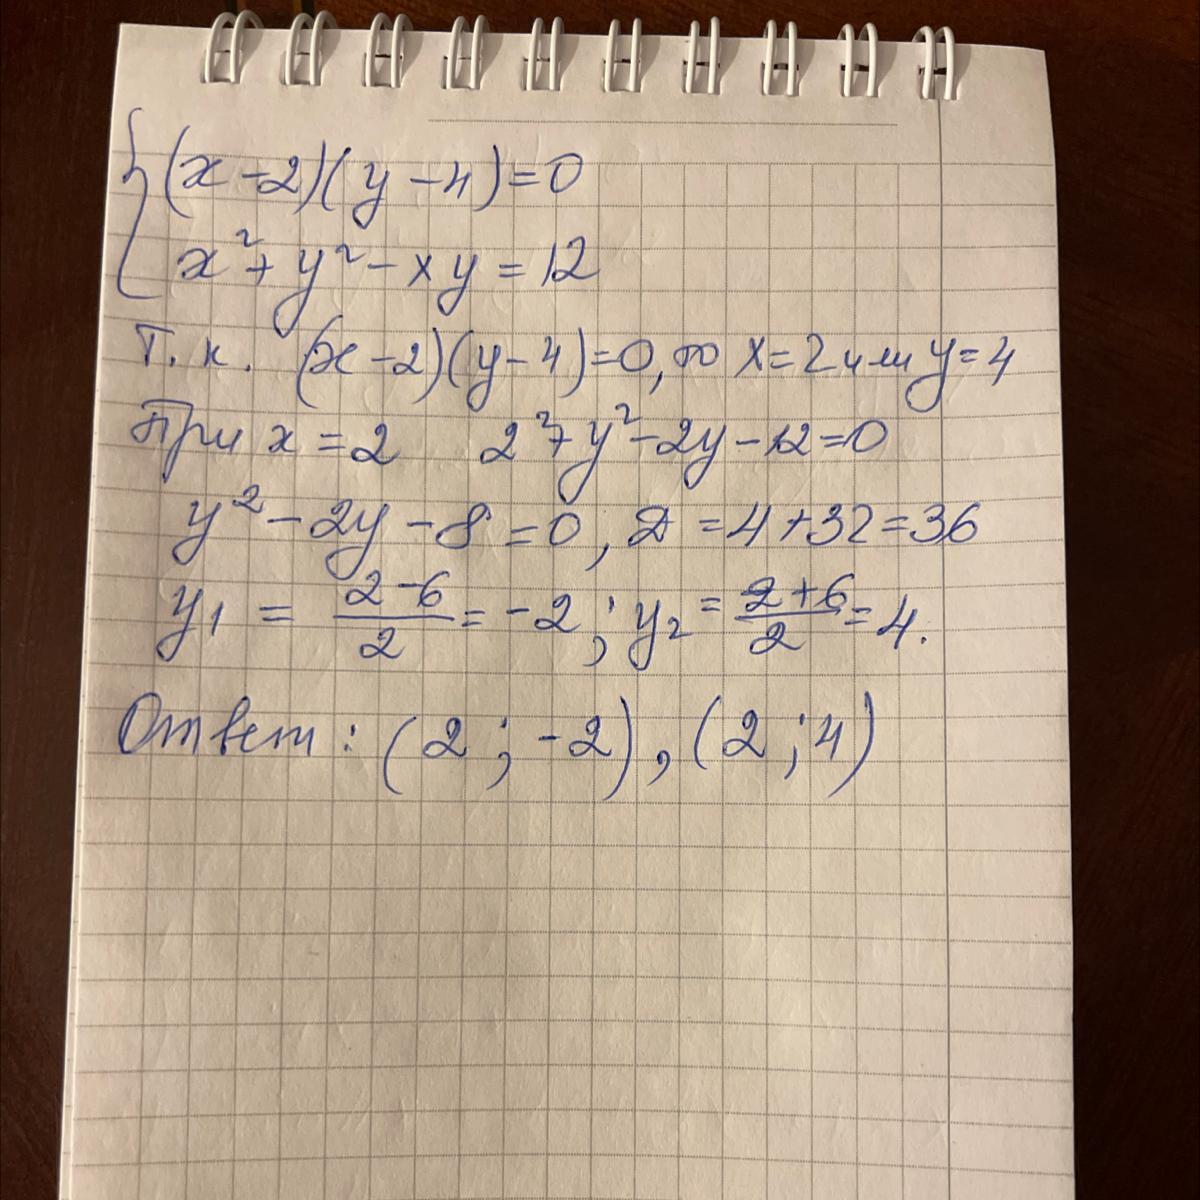 {(x-2)(y-4)=0
x²+y²-xy=12
Т.к. (x-2)(y-4)=0, то x=2 или y=4
При x=2 2²+y²-2y-12=0
y²-2y-8=0, D=4+32=36
y₁ = (2-6)/2 = -2; y₂ = (2+6)/2 = 4.
Ответ: (2;-2), (2;4)